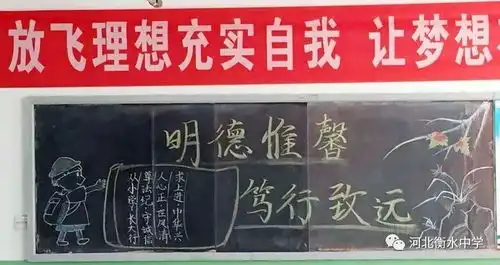 放飞理想充实自我 让梦想
明德惟馨
笃行致远
求上进 中华兴
人心正 世风清
尊法纪 守诚信
从小学 长大行
河北衡水中学